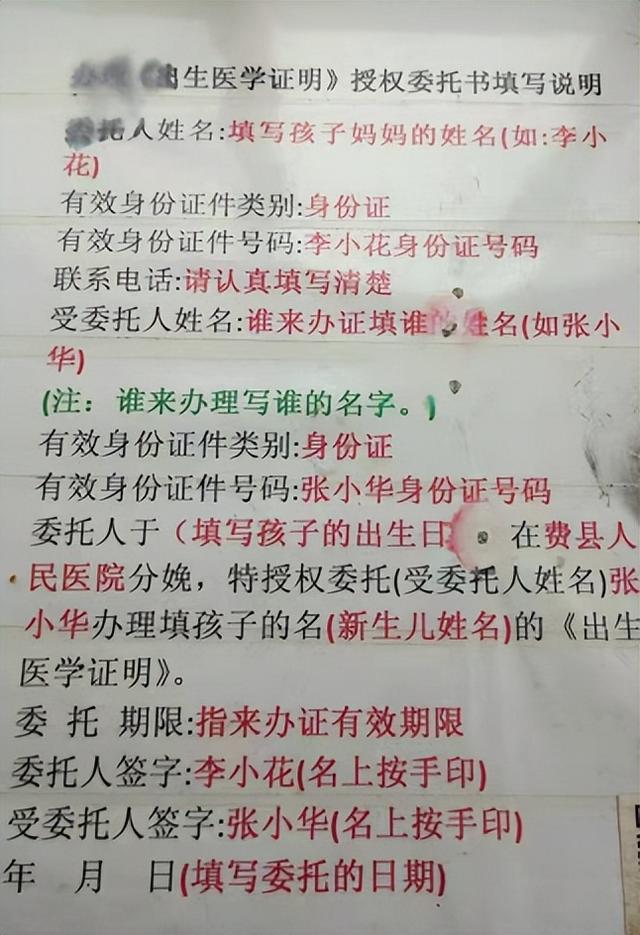 《出生医学证明》授权委托书填写说明
委托人姓名:填写孩子妈妈的姓名(如:李小
花)
有效身份证件类别:身份证
有效身份证件号码:李小花身份证号码
联系电话:请认真填写清楚
受委托人姓名:谁来办证填谁的姓名(如张小
华)
(注：谁来办理写谁的名字。)
有效身份证件类别:身份证
有效身份证件号码:张小华身份证号码
委托人于（填写孩子的出生日 在费县人
民医院分娩，特授权委托(受委托人姓名)张
小华办理填孩子的名(新生儿姓名)的《出生
医学证明》。
委 托 期限:指来办证有效期限
委托人签字:李小花(名上按手印)
受委托人签字:张小华(名上按手印)
年 月 日(填写委托的日期)